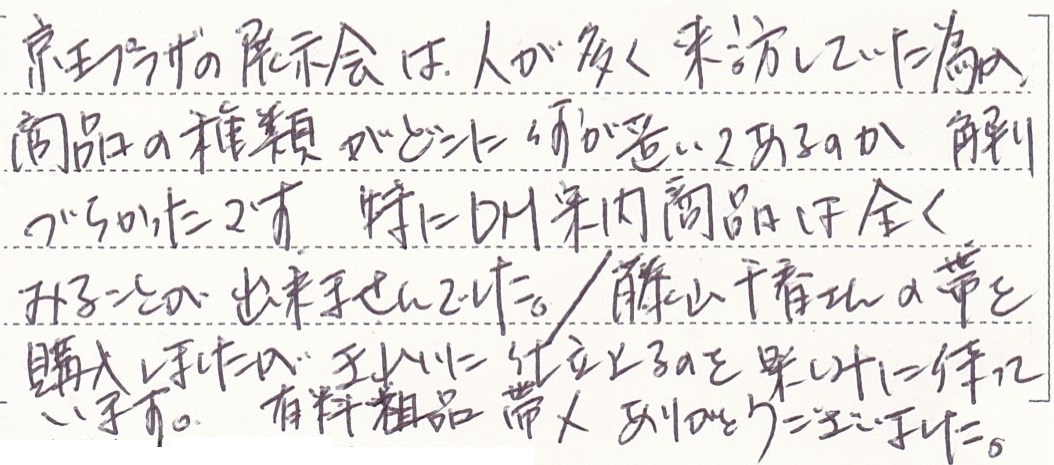 京王プラザの展示会は、人が多く来訪していた為か、
商品の種類がどこに何が置いてあるのか 解り
づらかったです 特にDM案内商品は全く
みることが出来ませんでした。/藤山千春さんの帯を
購入しましたが 仕立上るのを楽しみに待って
います。 有料粗品 帯〆 ありがとうございました。